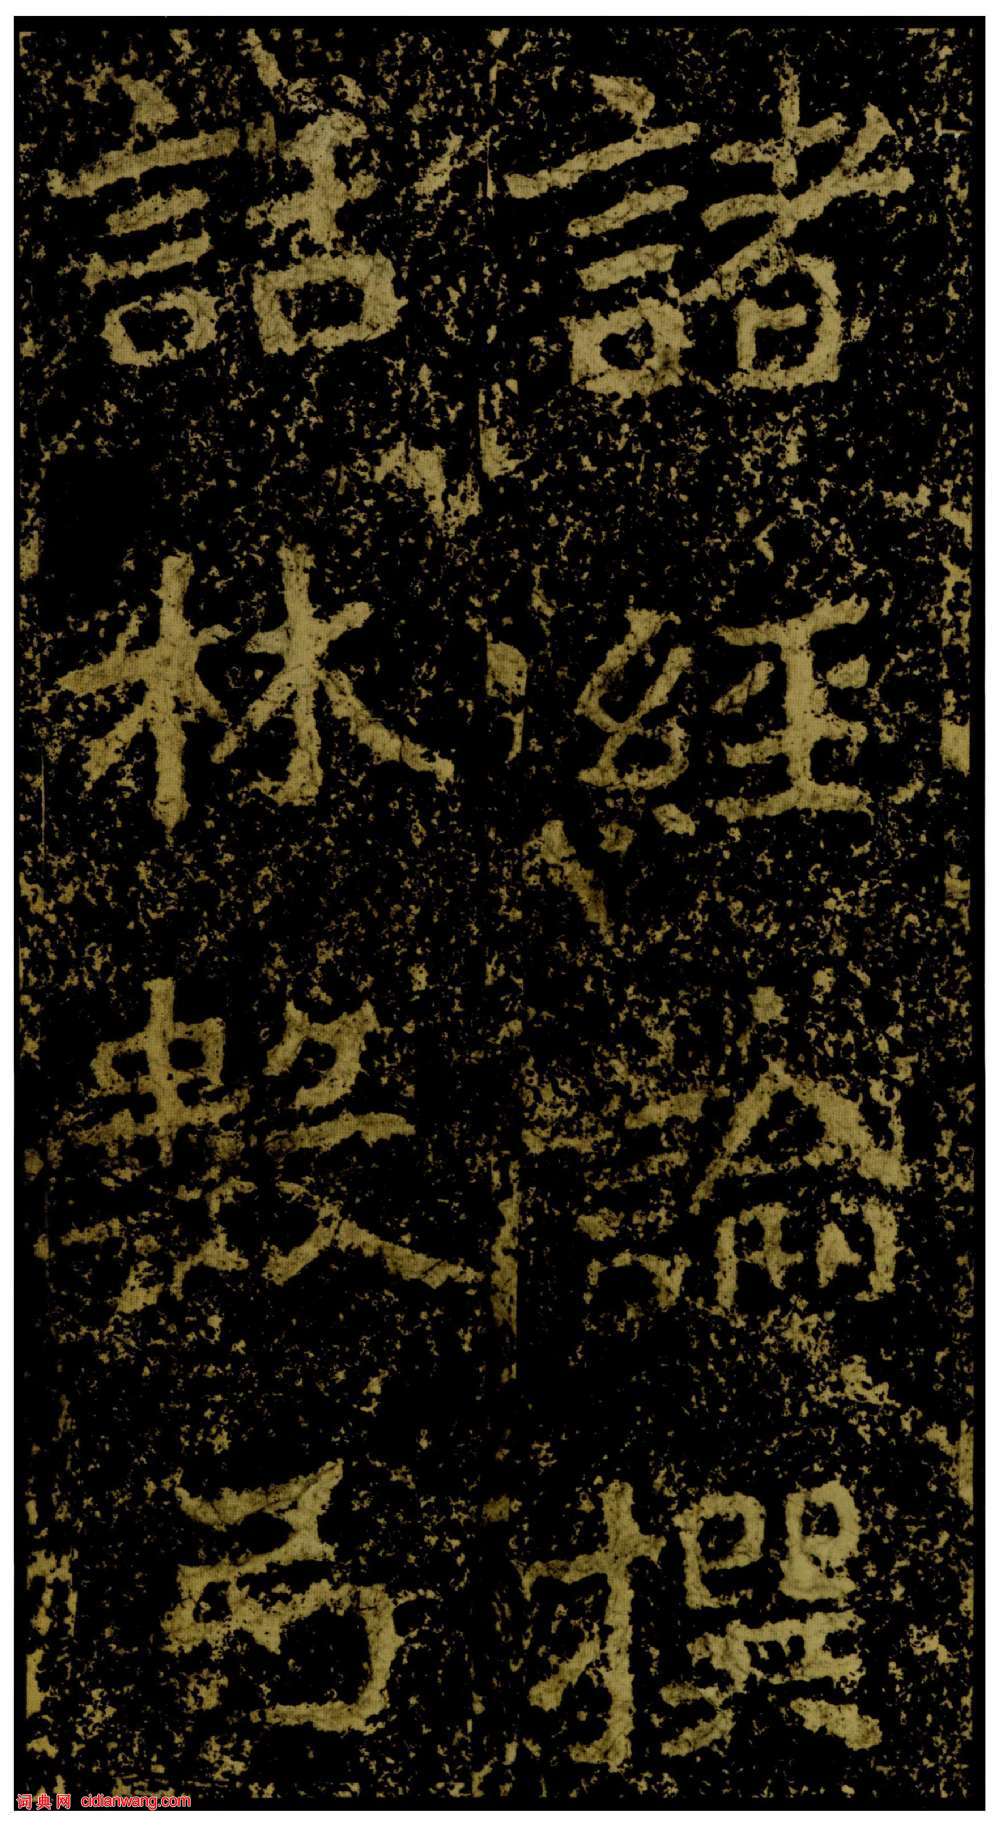 諸經論撰
話林數卷
词典网 cidianwang.com